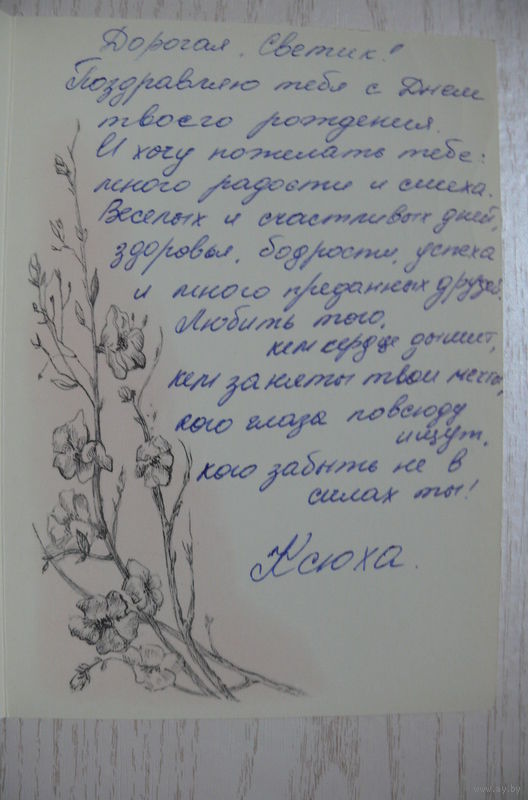 Дорогая, Светик!
Поздравляю тебя с Днем
твоего рождения.
И хочу пожелать тебе:
много радости и смеха.
Веселых и счастливых дней,
здоровья, бодрости, успеха
и много преданных друзей.
Любить того,
кем сердце дышит,
кем заняты твои мечты,
кого глаза повсюду
ищут,
кого забыть не в
силах ты!
Ксюха.
www.ay.by